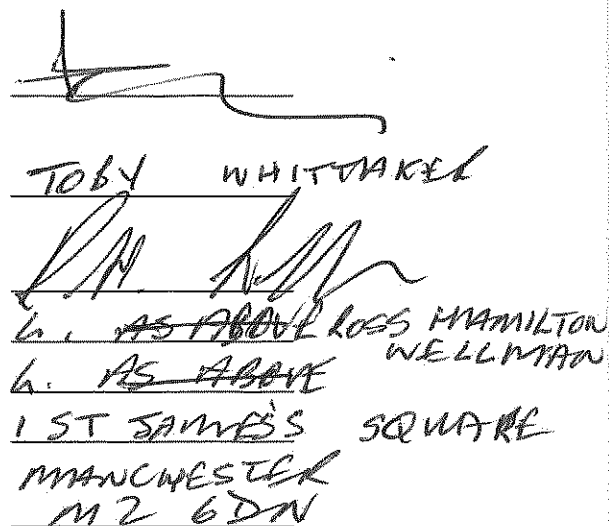 TOBY WHITTAKER
L. AS ABOVE ROSS HAMILTON
WELLMAN
L. AS ABOVE
1 ST JAMES'S SQUARE
MANCHESTER
M2 6DN